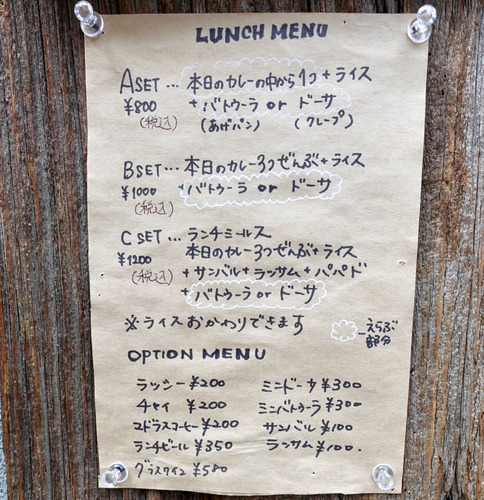 LUNCH MENU
A SET … 本日のカレーの中から1つ+ライス
¥800 + バトゥーラ or ドーサ
(税込) (あげパン) (クレープ)
B SET … 本日のカレー3つぜんぶ+ライス
¥1000 +バトゥーラ or ドーサ
(税込)
C SET … ランチミールス
¥1200 本日のカレー3つぜんぶ+ライス
(税込) +サンバル+ラッサム+パパド
+バトゥーラ or ドーサ
※ライスおかわりできます
えらぶ
部分
OPTION MENU
ラッシー ¥200 ミニドーサ ¥300
チャイ ¥200 ミニバトゥーラ ¥300
マドラスコーヒー ¥200 サンバル ¥100
ランチビール ¥350 ラッサム ¥100.
グラスワイン ¥580